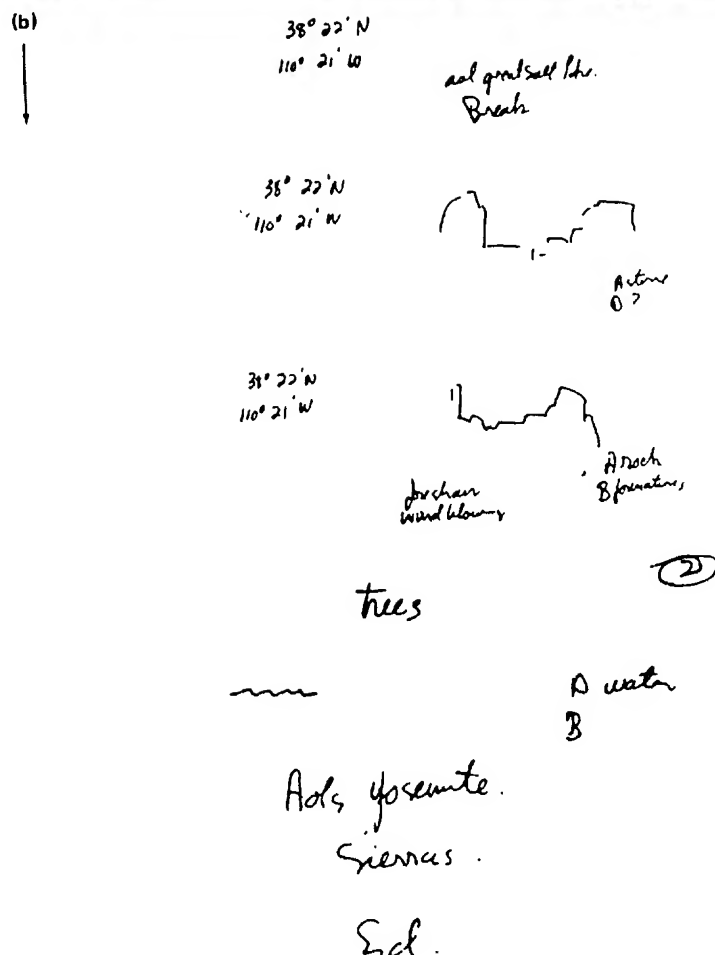 (b)
38° 22' N
110° 21' W
aol great salt lake.
Break
38° 22' N
110° 21' W
A
D ?
38° 22' N
110° 21' W
A rock
B formations
wind blowing
2
trees
A water
B
Aols Yosemite.
Sierras.
End.